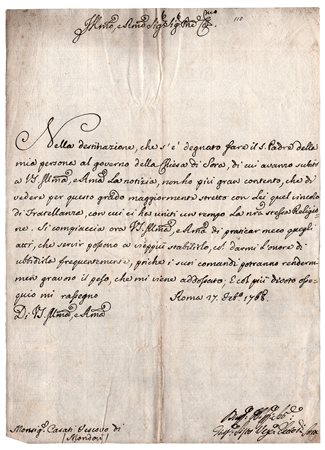 Ill.mo, e R.mo Sig.r Sig.r P.ne Col.mo
Nella destinazione, che s'è degnato fare il S. Padre della
mia persona al governo della Chiesa di Sora, di cui avanzo subito
a VS. Ill.ma, e R.ma la notizia, non ho più gran contento, che di
vedere per questo grado maggiormente stretto con Lei quel vincolo
di Fratellanza, con cui ci ha uniti un tempo la nr̃a stessa Religio
ne. Si compiaccia ora VS. Ill.ma, e R.ma di praticar meco quegli
atti, che servir possono a vieppiù stabilirlo, col darmi l'onore di
ubbidirlo frequentemente, poichè i suoi comandi potranno rendermi
men gravoso il peso, che mi viene addossato; E col più divoto osse
quio mi rassegno
Roma 27. Feb.o 1768.
Di VS. Ill.ma, e R.ma
Monsig.r Casati Vescovo di
(Mondovì)